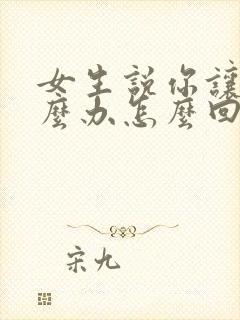 女生說你讓
麼办怎麼回
宋九